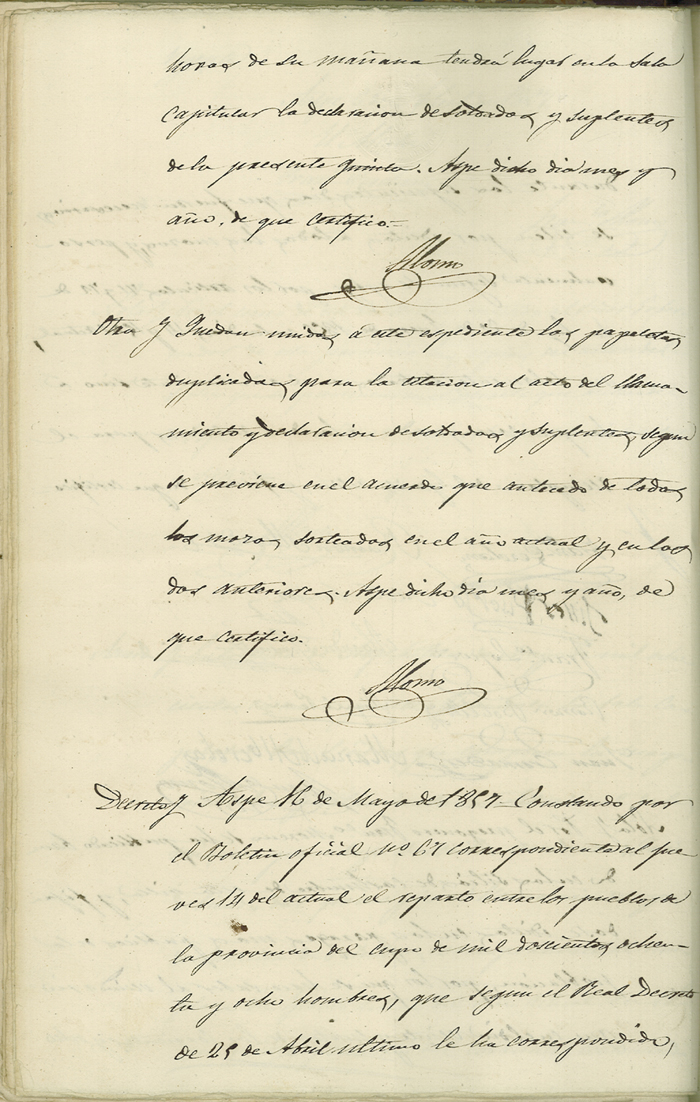 horas de su mañana tendrá lugar en la sala
capitular la declaracion de soldados y suplentes
de la presente quinta. Aspe dicho dia mes y
año, de que certifico.=
Otra} Quedan unidas á este espediente las papeletas
duplicadas para la citacion al acto del llama-
miento y declaracion de soldados y suplentes, segun
se previene en el acuerdo que antecede de todos
los mozos sorteados en el año actual y en los
dos anteriores. Aspe dicho dia mes y año, de
que certifico.
Decreto} Aspe 16 de Mayo de 1857. Constando por
el Boletin oficial nº 61 correspondiente al jue-
ves 14 del actual el reparto entre los pueblos de
la provincia del cupo de mil doscientos ochen-
ta y ocho hombres, que segun el Real Decreto
de 25 de Abril ultimo le ha correspondido,